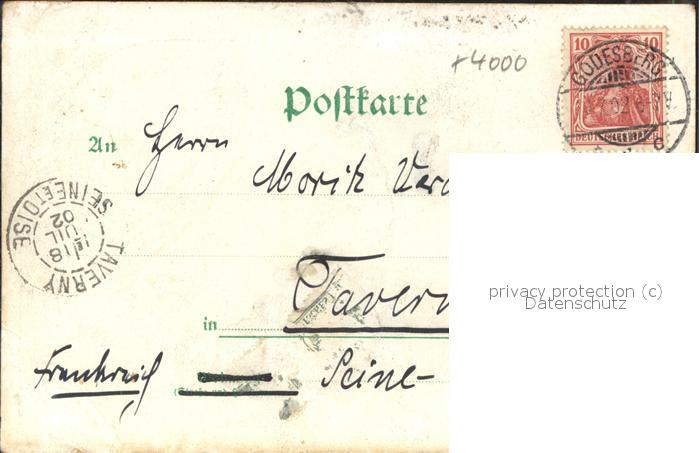 x4000
10 10
GODESBERG
02
DEUTSCHES REICH
Postkarte
An Herrn
Moritz
TAVERNY
SEINE ET OISE
18
JUIL
02
in Tavern
Frankreich Seine-
privacy protection (c)
Datenschutz